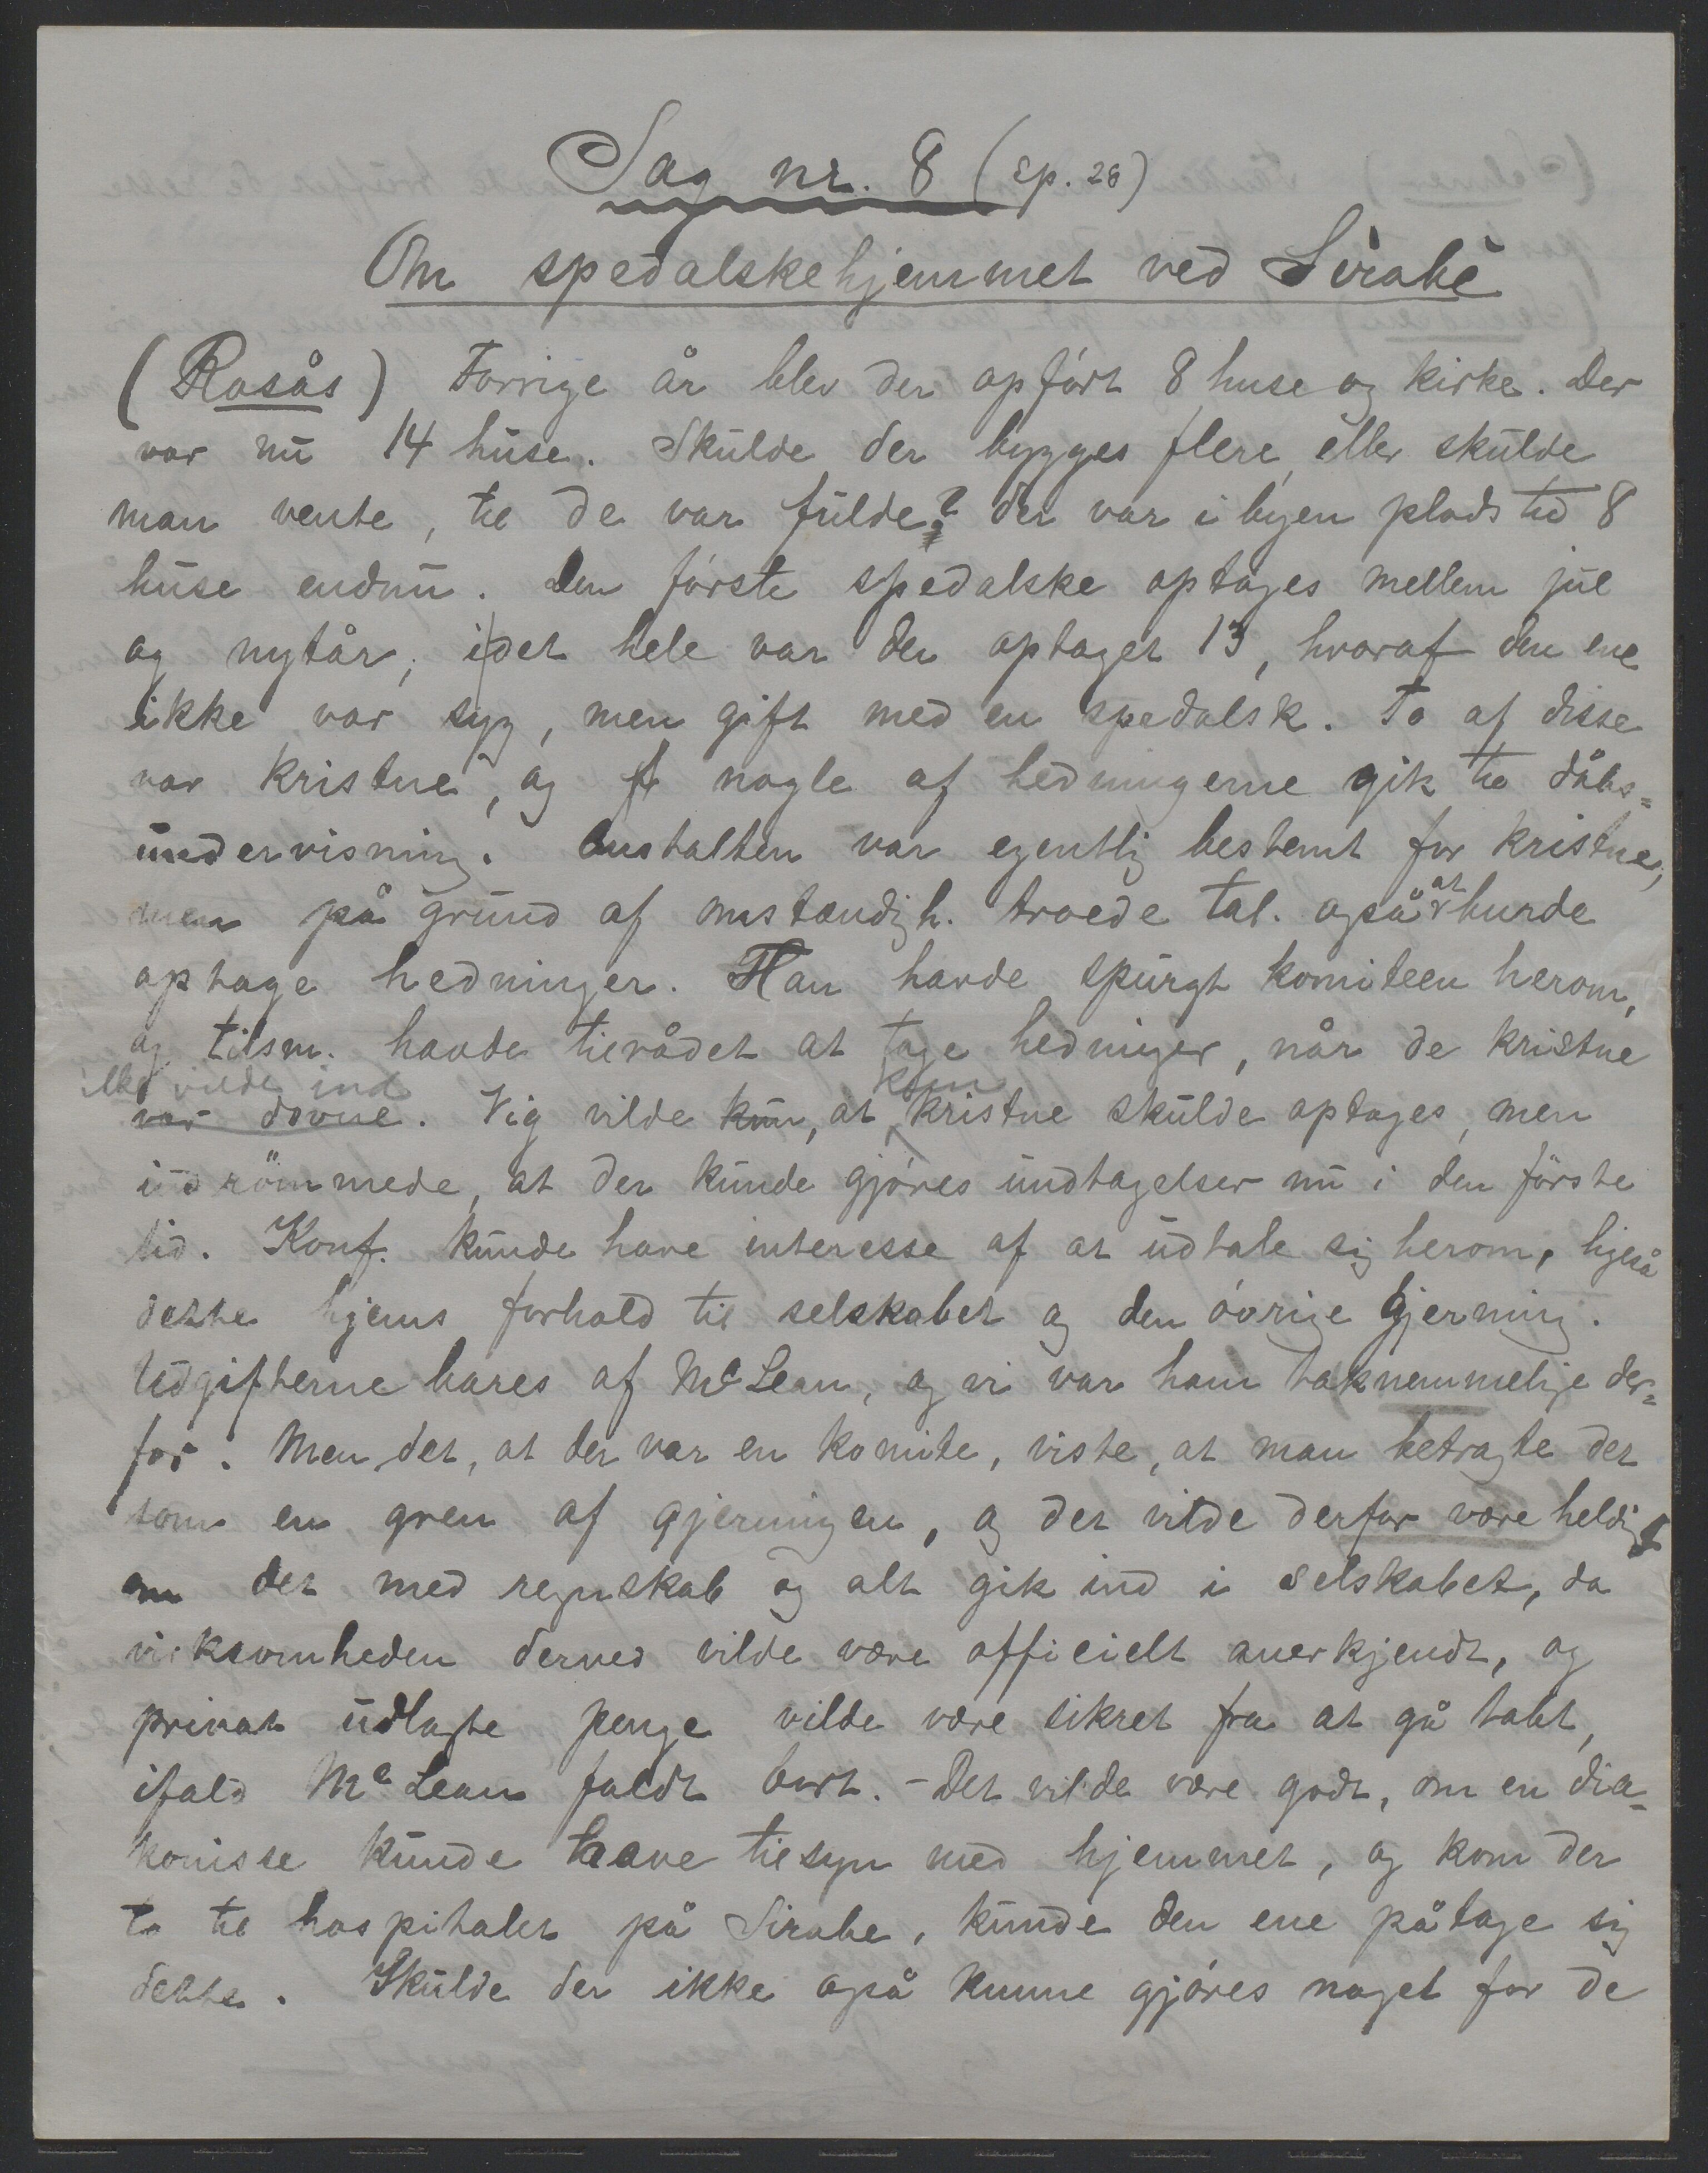 Sag nr. 8 (sp. 28)
Om spedalskehjemmet ved Sirabè
(Rosås) Forrige år blev der opført 8 huse og kirke. Der
var nu 14 huse. Skulde der bygges flere, eller skulde
man vente, til de var fulde? der var i byen plads til 8
huse endnu. Den første spedalske optages mellem jul
og nytår; i det hele var der optaget 13, hvoraf den ene
ikke var syg, men gift med en spedalsk. To af disse
var kristne, og nogle af hedningerne gik til dåbs=
undervisning. Anstalten var egentlig bestemt for kristne,
men på grund af omstændigh. troede tal. også at burde
optage hedninger. Han havde spurgt komiteen herom,
og tilsm. havde tilrådet at tage hedninger, når de kristne
ikke vilde ind
var dovne. Vig vilde kun, at kun kristne skulde optages, men
indrømmede, at der kunde gjøres undtagelser nu i den første
tid. Konf. kunde have interesse af at udtale sig herom, ligeså
dette hjems forhold til selskabet og den øvrige gjerning.
Udgifterne bares af McLean, og vi var ham taknemmelige der=
for. Men det, at der var en komite, viste, at man betragte det
som en gren af gjerningen, og det vilde derfor være heldigt
om det med regnskab og alt gik ind i selskabet, da
virksomheden derved vilde være officielt anerkjendt, og
privat udlagte penge vilde være sikret fra at gå tabt,
ifald Mc Lean faldt bort. - Det vilde være godt, om en dia-
konisse kunde have tilsyn med hjemmet, og kom der
to til hospitalet på Sirabe, kunde den ene påtage sig
dette. Skulde der ikke også kunne gjøres noget for de